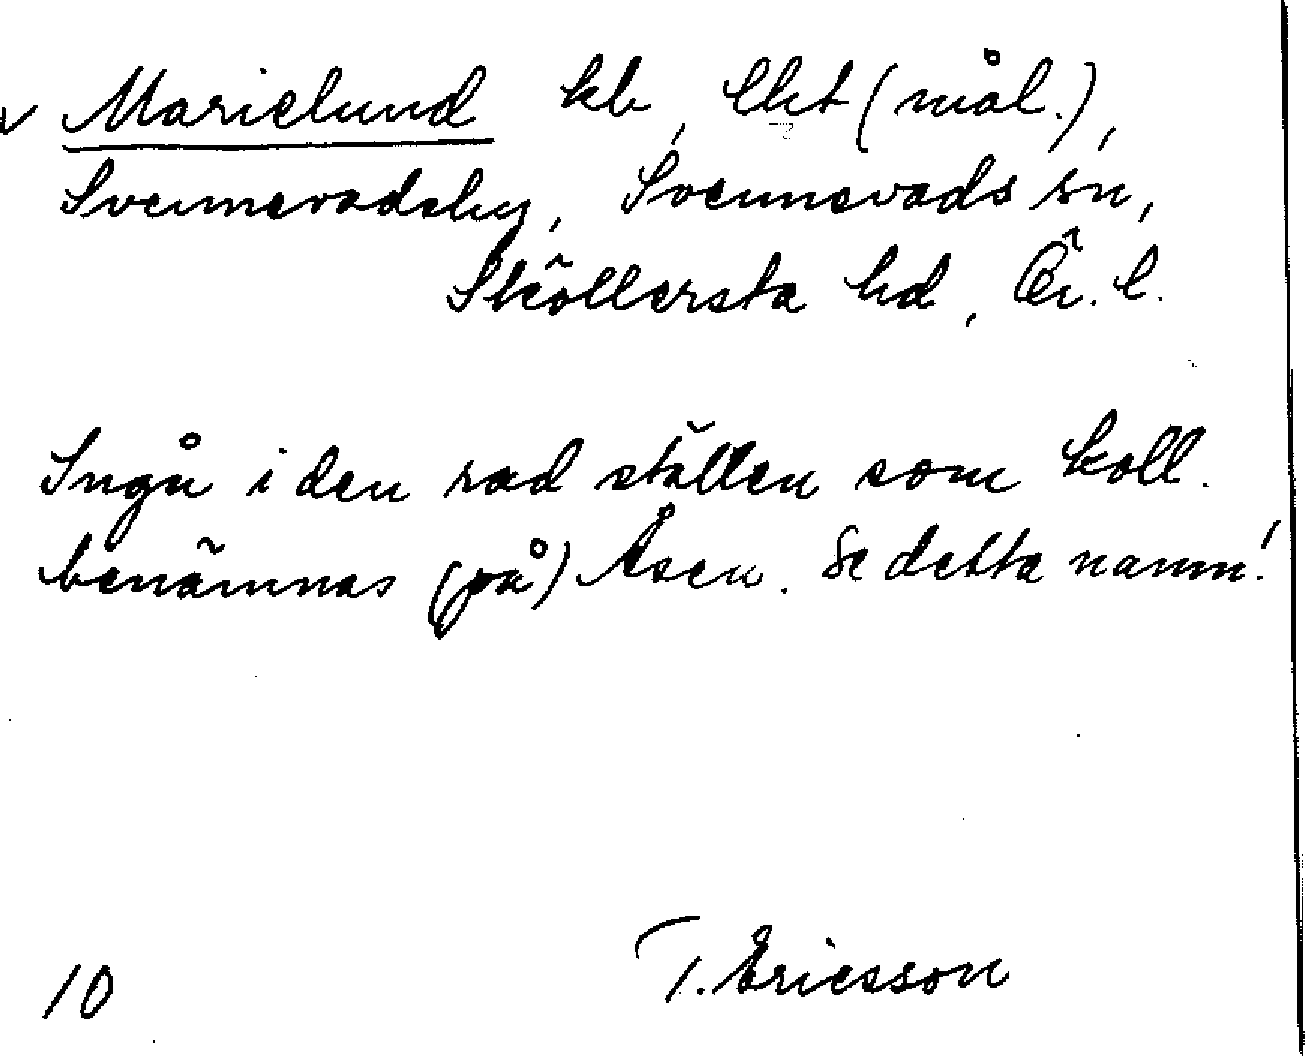 v Marielund kb, Ekt (mål.),
Svennevadsby, Svennevads sn,
Sköllersta hd, Ör. l.
Ingår i den rad ställen som koll.
benämnas (på) Åsen. Se detta namn!
10 T. Ericsson